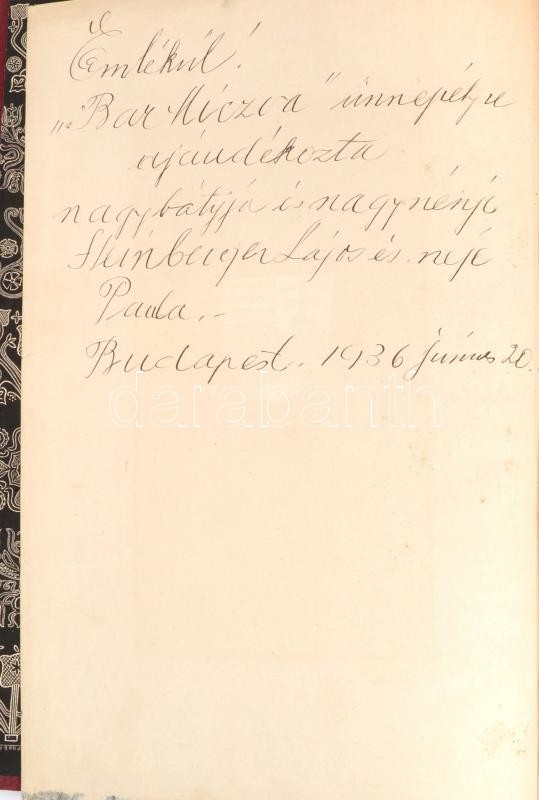 Emlékül!
„Bar Miczva" ünnepélyre
ajándékozta
nagybátyja és nagynénje
Steinberger Lajos és neje
Paula.–
Budapest. 1936 június 20.
darabanth